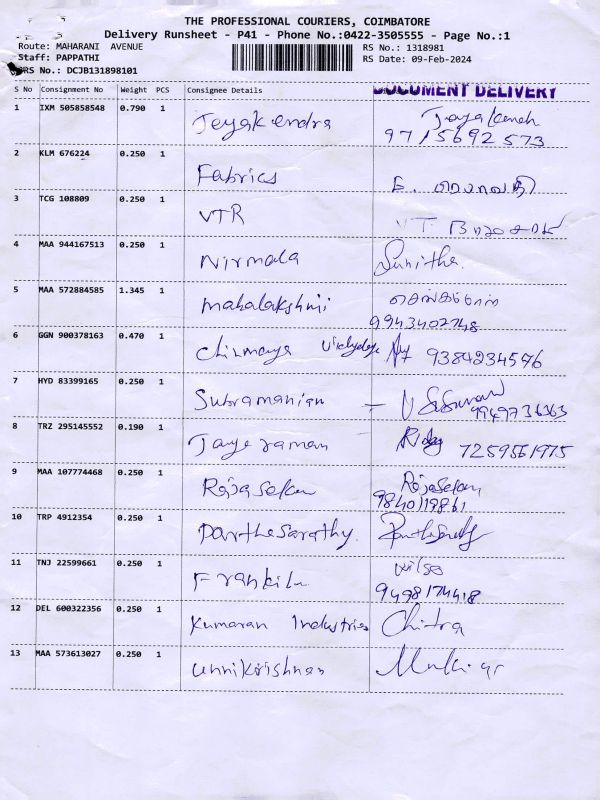 THE PROFESSIONAL COURIERS, COIMBATORE
Delivery Runsheet - P41 - Phone No.:0422-3505555 - Page No.:1
Route: MAHARANI AVENUE RS No.: 1318981
Staff: PAPPATHI RS Date: 09-Feb-2024
DRS No.: DCJB131898101
S No Consignment No Weight PCS Consignee Details DOCUMENT DELIVERY
1 IXM 505858548 0.790 1 Jeyakendra
9715692573
2 KLM 676224 0.250 1 Fabrics
3 TCG 108809 0.250 1 VTR
4 MAA 944167513 0.250 1 Nirmala Sunitha.
5 MAA 572884585 1.345 1 mahalakshmi
9943402748
6 GGN 900378163 0.470 1 9384234576
7 HYD 83399165 0.250 1 Subramanian
8 TRZ 295145552 0.190 1 Jayeraman 7259561975
9 MAA 107774468 0.250 1 Rajasekar Rajasekar
9840119861
10 TRP 4912354 0.250 1 Parthesarathy.
11 TNJ 22599661 0.250 1
9498174418
12 DEL 600322356 0.250 1 Kumaran Industries Chitra
13 MAA 573613027 0.250 1 unnikrishnan